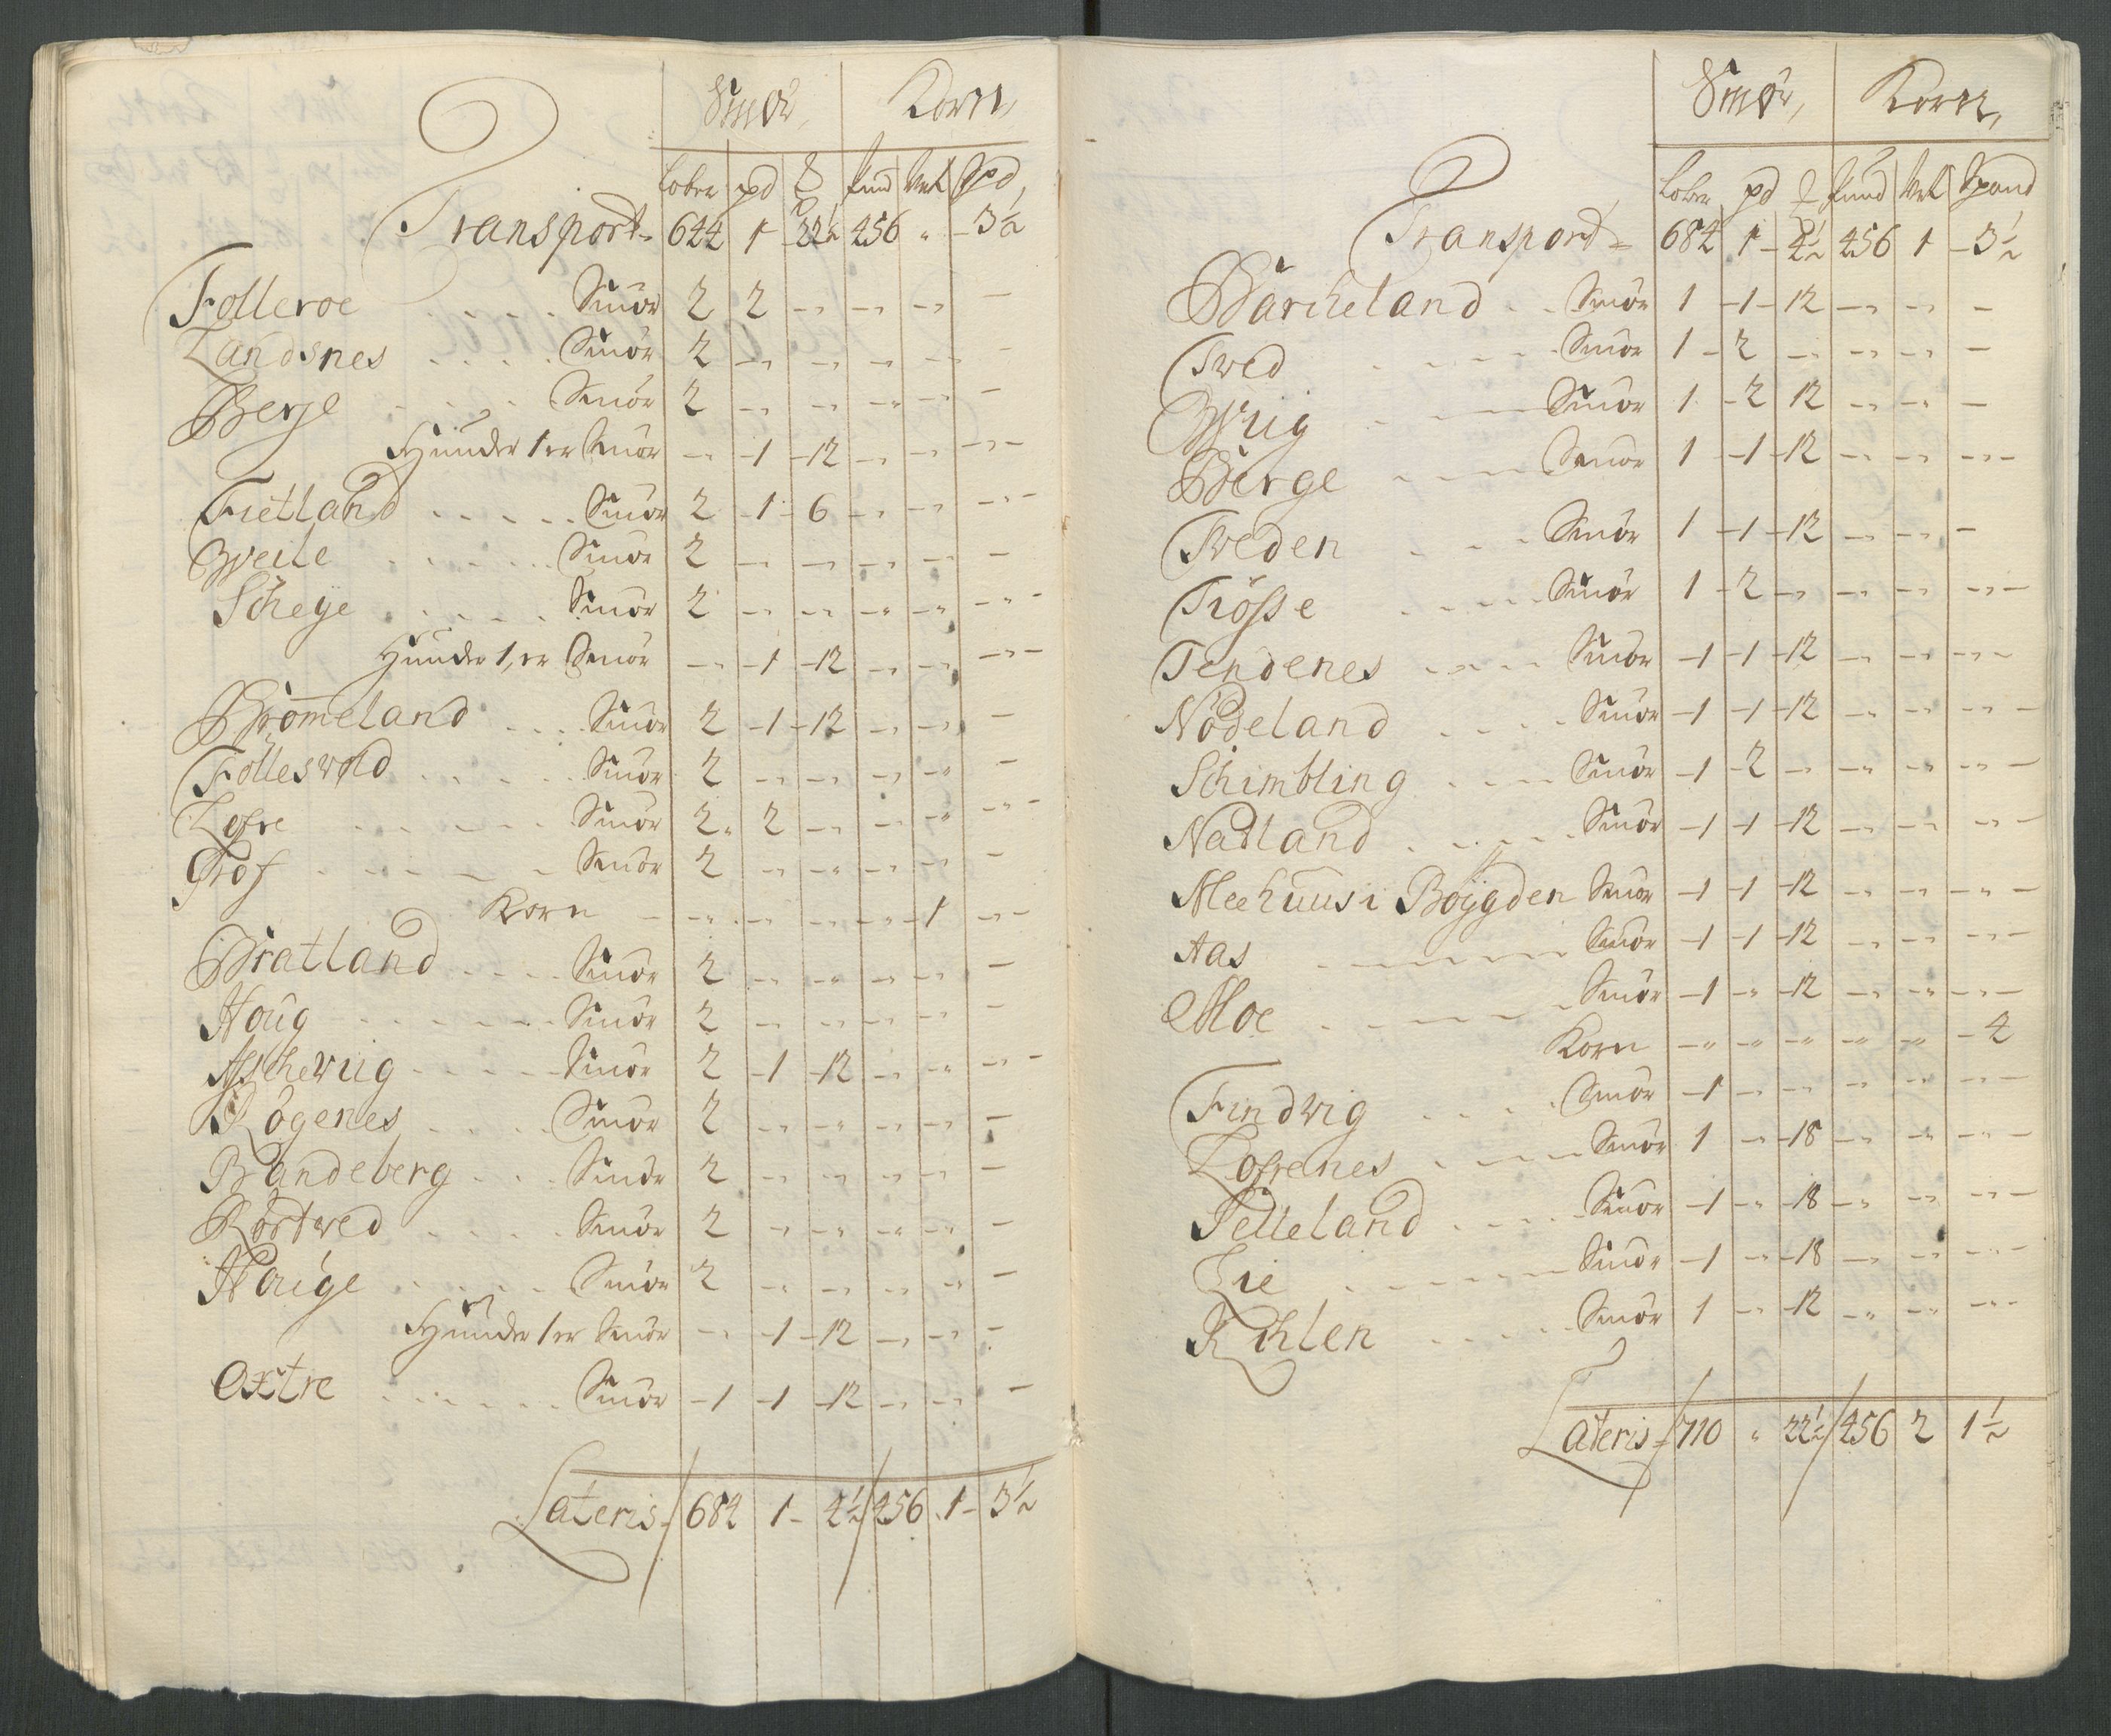 Smör, Korn,
Løber pd ℔ Pund Vet Spd,
Transport- 644 1 - 22½ 456 " - 3½
Folleroe . . . . Smör 2 2 -" -" -" -
Landsnes . . . . Smör 2 -" -" -" -" -
Berge . . . . Smör 2 -" -" -" -" -
Hünder 1 er Smör -" -1 -12 -" -" -"-
Fietland . . . . . Smör 2 -1- 6 -" -" -"-
Weile . . . . . Smör 2 -" -" -" -" -
Scheÿe . . . . . Smör 2 -" -" -" -" -"-
Hünder 1, er Smör -" -1 -12 -" -" -"-
Brömeland . . . . Smör 2 -1 -12 -" -" -
Follesvold . . . . . Smör 2 -" -" -" -" -
Lofre . . . . . . Smör 2" 2 -" -" -" -"-
Grof . . . . . . Smör 2 -" -" -" -" -
Korn - -" -" -" -" -1 -"-
Bratland . . . . Smör 2 -" -" -" -" -
Houg . . . . . . Smör 2 -" -" -" -" -
Aschevüg . . . . . Smör 2 -1 -12 -" -" -"-
Lögenes . . . . Smör 2 -" -" -" -" -
Bandeberg . . . Smör 2 -" -" -" -" -
Rörtwed . . . . Smör 2 -" -" -" -" -
Houge . . . . . Smör 2 -" -" -" -" -
Hünder 1 er Smör -" -1 -12 -" -" -
Oxtre . . . . . . Smör -1 -1 -12 -" -" -
Lateris- 684 1- 4½ 456 .1- 3½
Smör, Korn,
Løber pd ℔ Pund Vet Spand
Transport= 684 1- 4½ 456 1 - 3½
Barcheland . . Smör 1 -1- 12 -" -" -
Tved . . . . . Smör 1 - 2 -" -" -" -
Wiig . . . Smör 1 -2 12 -" -" -
Berge . . . Smör 1 -1 -12 -" -" -"-
Tveden . . . Smör 1 -1 -12 -" -" -
Tiösse . . . . Smör 1 -2 -" -" -" -"-
Tendenes . . . . Smör -1 -1 -12 -" -" -"-
Nödeland . . . . Smör -1 -1 -12 -" -" -"-
Schimbling . . . Smör -1 -2 -" -" -" -"-
Nadland . . . . Smör -1 -1 -12 -" -" -"-
Meehuus i Boÿgden Smör -1 -1 -12 -" -" -"-
Aas . . . . . . Smör -1 -1 -12 -" -" -"-
Moe . . . . . Smör -1 -" -12 -" -" -"-
Korn -" -" -" -" -" -4
Findvig . . . . Smör -1 -" -" -" -" -"-
Lofrenes . . . . Smör 1 -" -18 -" -" -"-
Pelleland . . . . Smör -1 -" -18 -" -" -"-
Lie . . . . . Smör -1 -" -18 -" -" -"-
Kihlen . . . . Smör 1 -" -12 -" -" -"-
Lateris= 710 " 22½ 456 2 1½